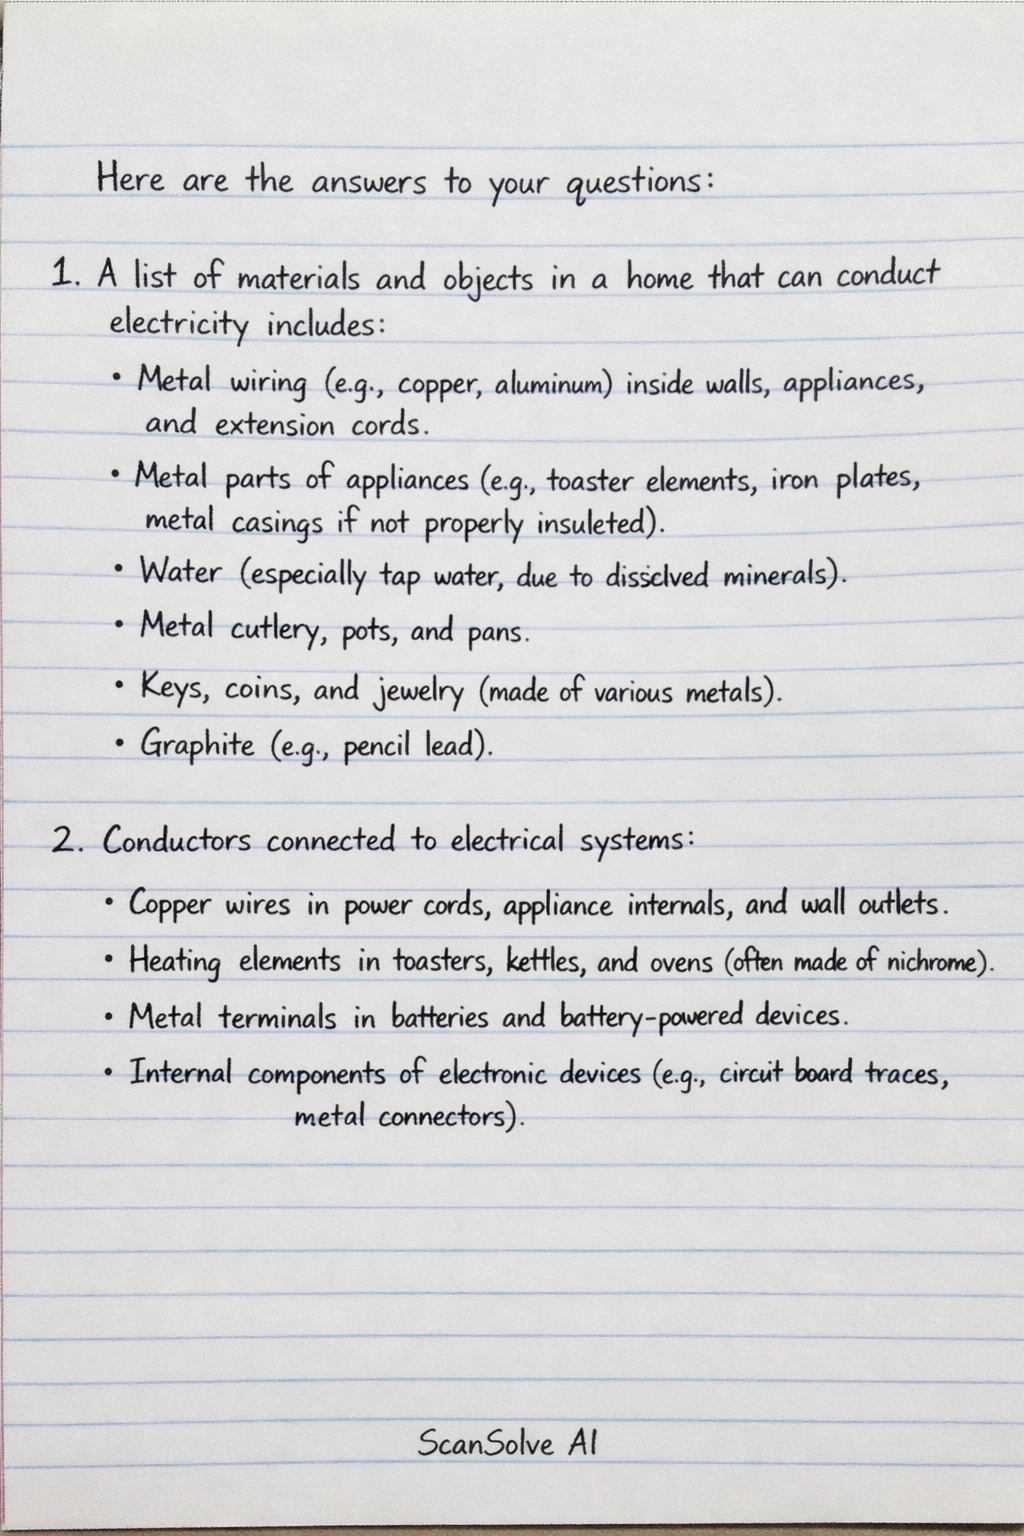 Here are the answers to your questions:
1. A list of materials and objects in a home that can conduct
electricity includes:
• Metal wiring (e.g., copper, aluminum) inside walls, appliances,
and extension cords.
• Metal parts of appliances (e.g., toaster elements, iron plates,
metal casings if not properly insuleted).
• Water (especially tap water, due to dissclved minerals).
• Metal cutlery, pots, and pans.
• Keys, coins, and jewelry (made of various metals).
• Graphite (e.g., pencil lead).
2. Conductors connected to electrical systems:
• Copper wires in power cords, appliance internals, and wall outlets.
• Heating elements in toasters, kettles, and ovens (often made of nichrome).
• Metal terminals in batteries and battery-powered devices.
• Internal components of electronic devices (e.g., circuit board traces,
metal connectors).
ScanSolve AI